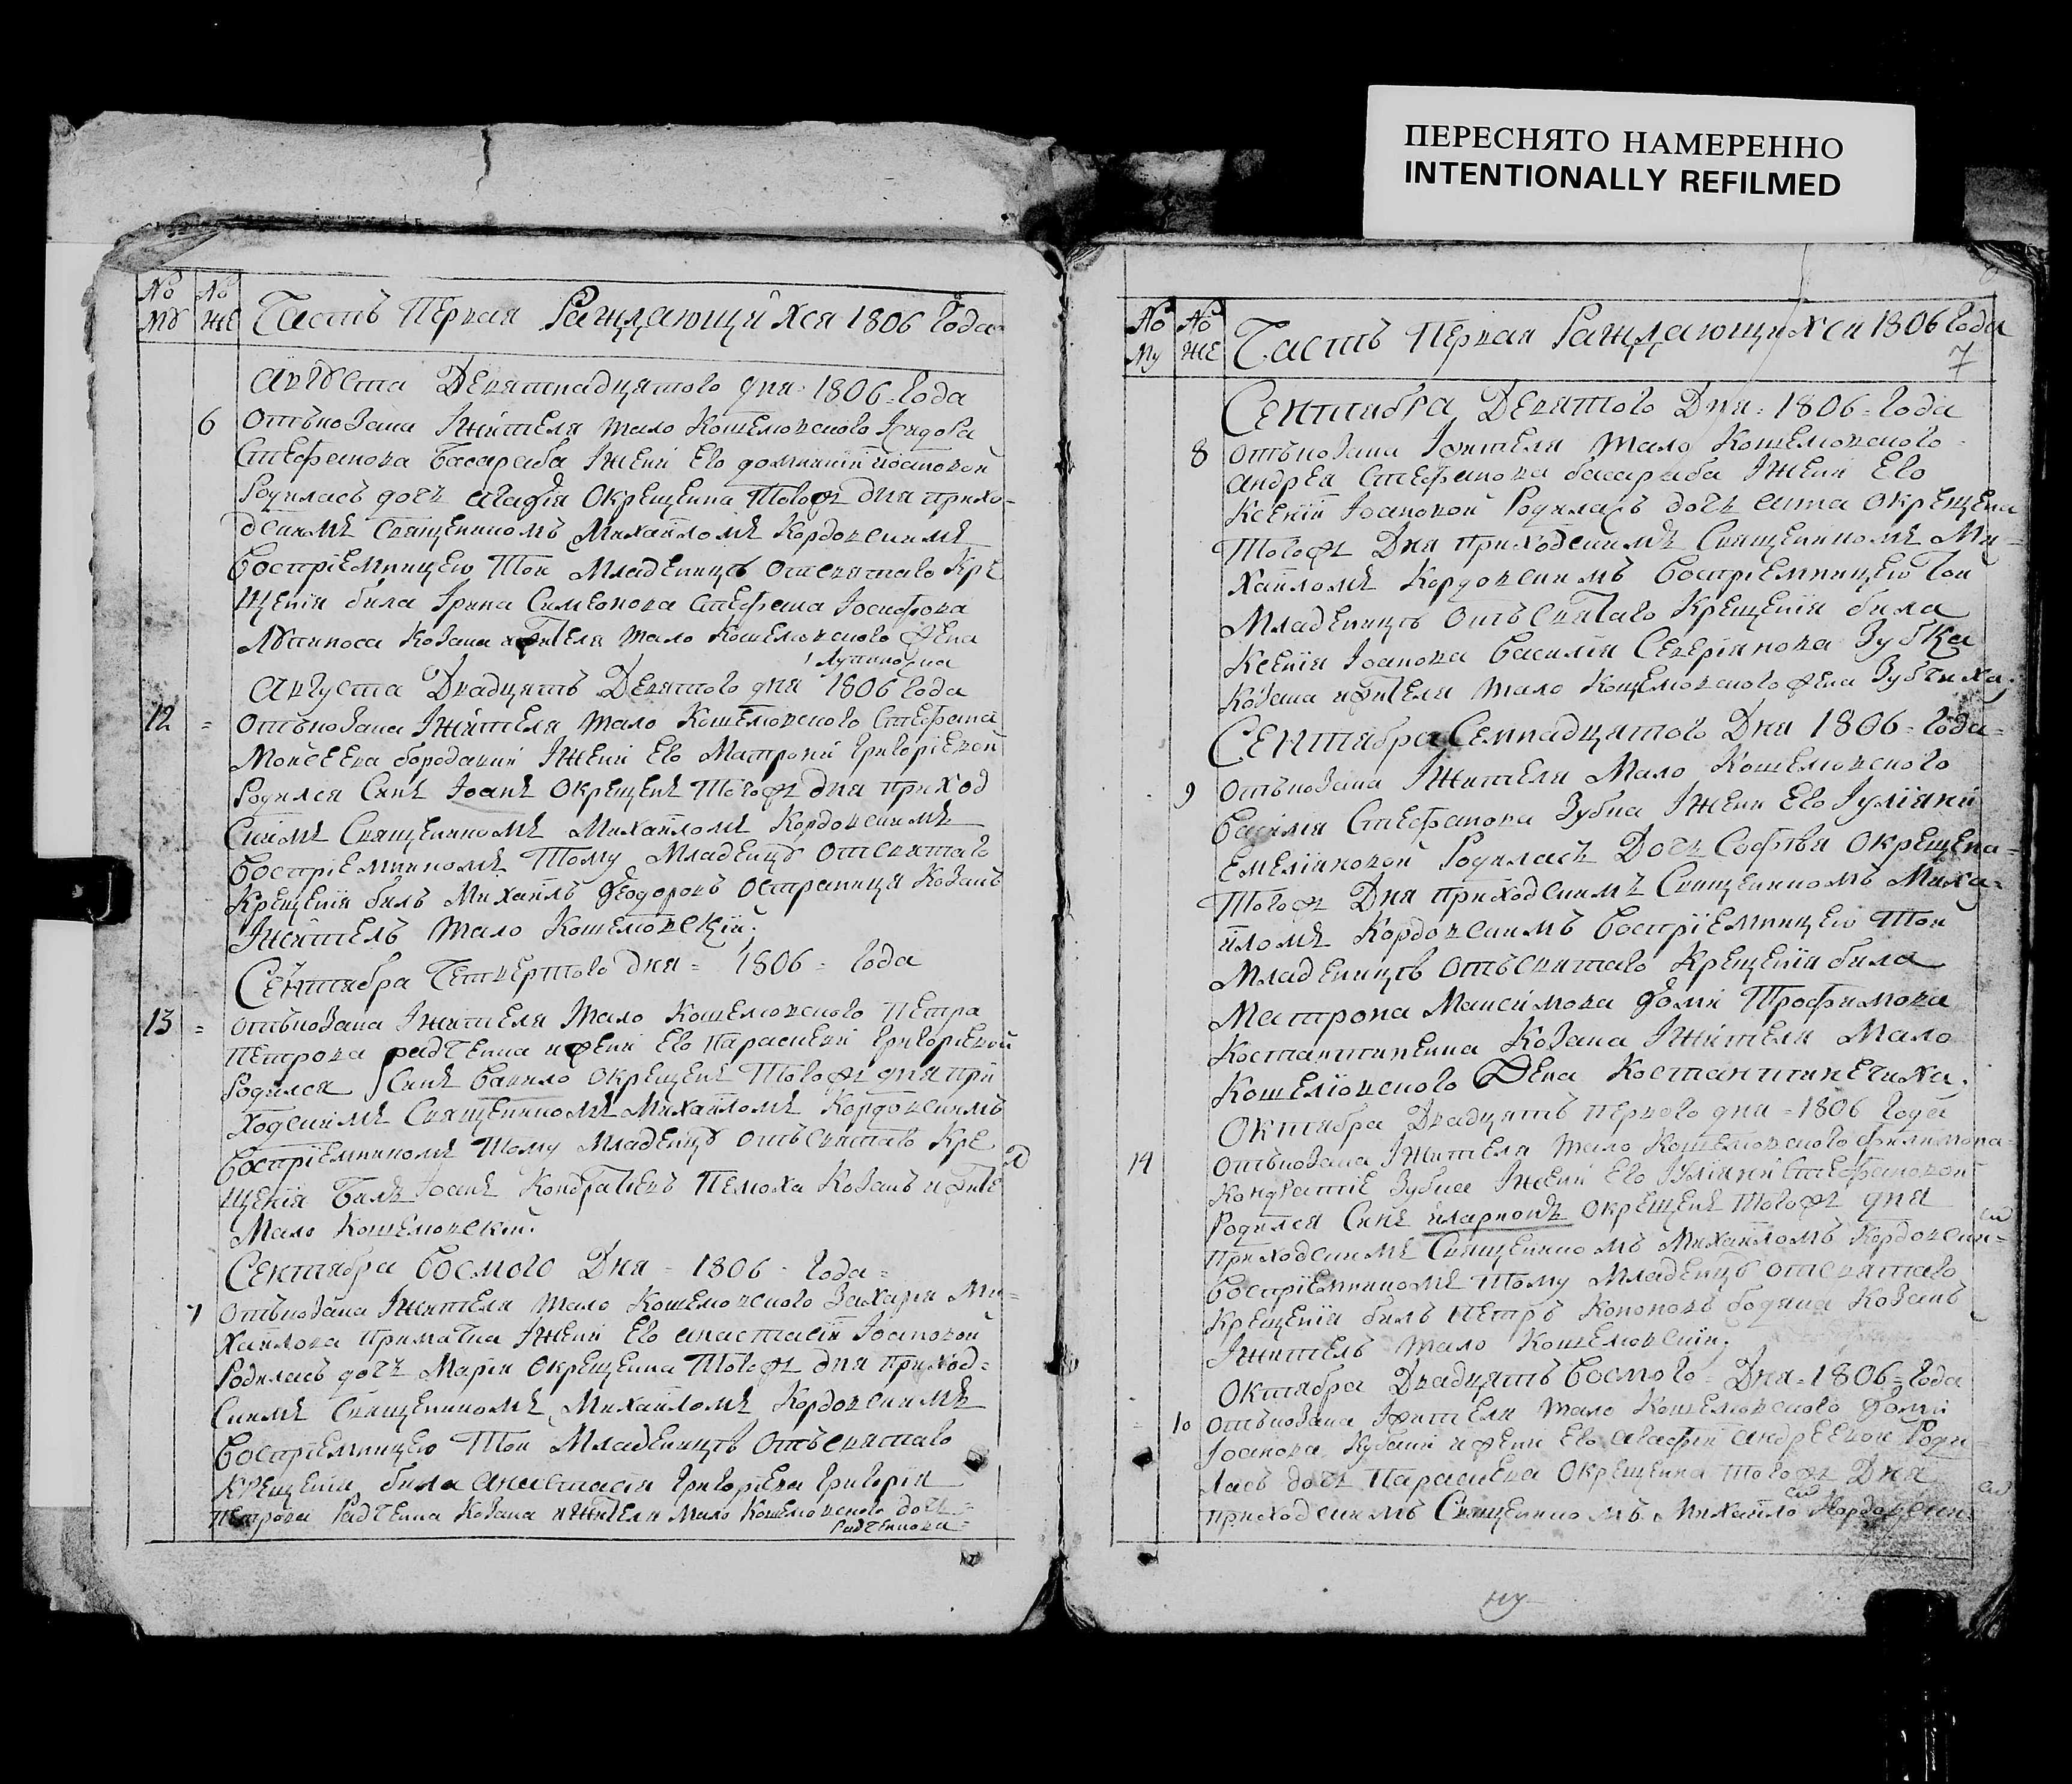 ПЕРЕСНЯТО НАМЕРЕННО
INTENTIONALLY REFILMED
№ №
Му Же Часть Первая Раждающихся 1806 Года
Августа Девятнадцатого дня 1806 Года
6 Отъ козака Іжителя Мало Кошелювского
Стефанова Басараба Іжени Его Іоановой
Родилась дочь Агафія Окрещенна Тогож дня прихо-
дскимъ Священникомъ Михайломъ Кордовскимъ
Воспріемницею Той Младеницѣ отсвятаго Кре
щенія била Ірина Симеонова Стефана Іосифова
козака ижителя Мало Кошелювского жена
Августа Двадцять Девятого дня 1806 Года
12 = Отъ козака Іжителя Мало Кошелювского Стефана
Мойсеева Бородавки Іжени Его Матрони Григоріевой
Родился Синъ Іоанъ Окрещенъ Тогож дня приход
скимъ Священникомъ Михайломъ Кордовскимъ
Воспріемникомъ Тому Младенцу отсвятаго
Крещенія билъ Михаилъ Феодоровъ Остраница Козакъ
Іжитель Мало Кошелювскій.
Сентября Четвертого дня = 1806 = Года
13 = Отъ козака Іжителя Мало Кошелювского Петра
Петрова Радченка ижени Его Параскеви Григоріевой
Родился Синъ Вавило Окрещенъ Тогож дня при
ходскимъ Священникомъ Михайломъ Кордовскимъ
Воспріемникомъ Тому Младенцу отъ святаго Кре
щенія Билъ Іоанъ Кондратіевъ Пелюха Козакъ ижите
Мало Кошелювскій.
Сентября Восмого Дня - 1806 - Года =
7 Отъ козака Іжителя Мало Кошелювского Захарія Ми-
хайлова Примачка Іжени Его Анастасіи Іоановой
Родилась дочь Марія Окрещенна Тогож дня приход-
скимъ Священникомъ Михайломъ Кордовскимъ
Воспріемницею Той Младеницѣ Отъ святаго
Крещенія била Анастасія Григоріева Григорія
Петрова Радченка Козака ижителя Мало Кошелювского дочь =
Радченкова =
№ №
Му Же Часть Первая Раждающихся 1806 Года
7
Сентября Девятого Дня = 1806 = Года
8 Отъ козака Іжителя Мало Кошелювского
Андрея Стефанова Басараба Іжени Его
Ксеніи Іоановой Родилась дочь Окрещена
Тогож Дня приходскимъ Священникомъ Ми-
хайломъ Кордовскимъ Воспріемницею Той
Младеницѣ Отъ святаго Крещенія била
Ксенія Іоанова Василія Северіянова Зубка
Козака ижителя Мало Кошелювского жена Зубчиха.
Сентября Семнадцятого Дня 1806 = Года =
9 Отъ козака Іжителя Мало Кошелювского
Василія Стефанова Зубка Іжени Его Іуліяни
Емеліяновой Родилась Дочь Софія Окрещена =
Тогож Дня приходскимъ Священникомъ Миха-
йломъ Кордовскимъ Воспріемницею Той
Младеницѣ Отъ святаго Крещенія била
Матрона Максимова Фоми Трофимова
Костантиненка Козака Іжителя Мало
Кошелювского Жена Костантинечиха.
Октября Двадцять первого дня = 1806 Года
14 Отъ козака Іжителя Мало Кошелювского Филимона
Кондратіе Зубка Іжени Его Іуліяни Стефановой
Родился Синъ Иларионъ Окрещенъ Тогож дня
приходскимъ Священникомъ Михайломъ Кордовски-
Воспріемникомъ Тому Младенцу отсвятаго
Крещенія билъ Петръ Кононовъ Козакъ
Іжитель Мало Кошелювскій.
Октября Двадцять Восмого Дня = 1806 = Года
10 Отъ козака Іжителя Мало Кошелювского Фоми
Іоанова ижени Его Агафіи Андреевой Роди
лась дочь Параскева Окрещенна Тогож Дня
приходскимъ Священникомъ Михайло Кордовским